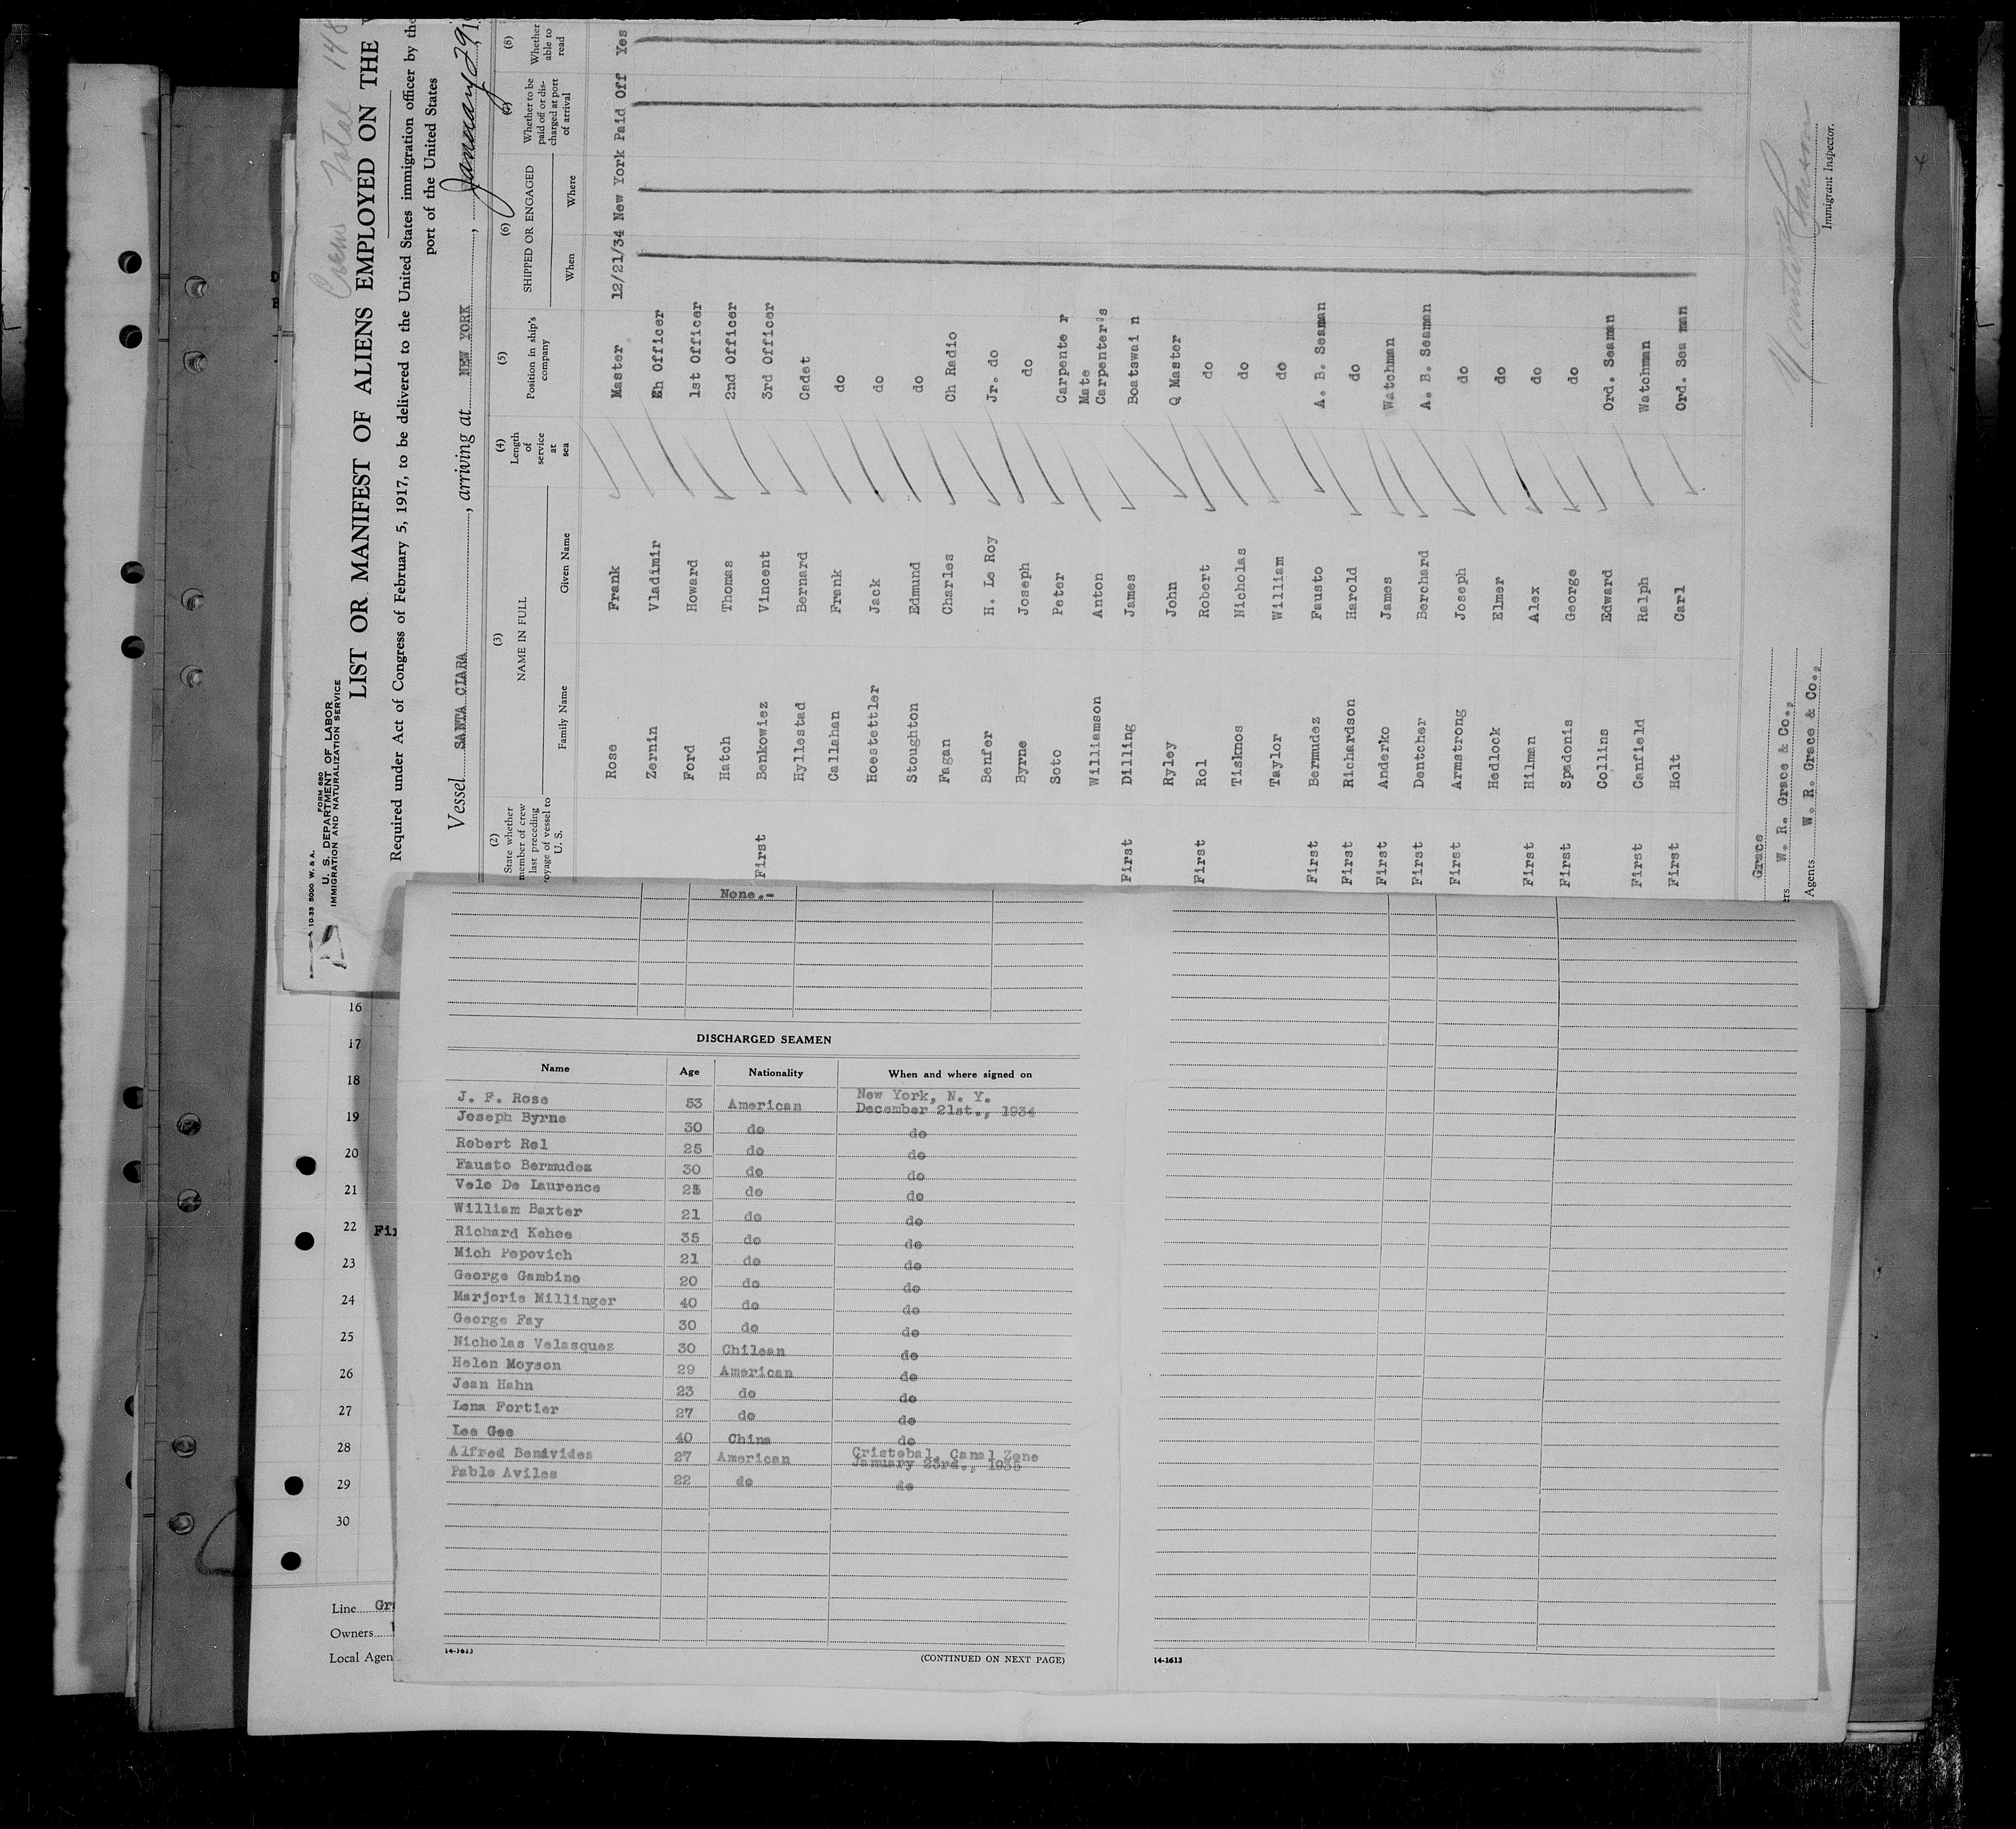 Crews Total 148
10-33 5000 W. & A.
FORM 680
U. S. DEPARTMENT OF LABOR
IMMIGRATION AND NATURALIZATION SERVICE
LIST OR MANIFEST OF ALIENS EMPLOYED ON THE
Required under Act of Congress of February 5, 1917, to be delivered to the United States immigration officer by the
port of the United States
Vessel SANTA CLARA, arriving at NEW YORK, January 29, 19
(2) State whether member of crew last preceding voyage of vessel to U. S.
(3) NAME IN FULL
Family Name Given Name
(4) Length of service at sea
(5) Position in ship's company
(6) SHIPPED OR ENGAGED
When Where
(7) Whether to be paid off or discharged at port of arrival
(8) Whether able to read
Rose Frank Master 12/21/34 New York Paid Off Yes
Zernin Vladimir Eh Officer
Ford Howard 1st Officer
Hatch Thomas 2nd Officer
First Benkowiez Vincent 3rd Officer
Hyllestad Bernard Cadet
Callahan Frank do
Hoestettler Jack do
Stoughton Edmund do
Fagan Charles Ch Radio
Benfer H. Le Roy Jr. do
Byrne Joseph do
Soto Peter Carpente r
Mate
Williamson Anton Carpenter's
First Dilling James Boatswai n
Ryley John Q Master
First Rol Robert do
Tisknos Nicholas do
Taylor William do
First Bermudez Fausto A. B. Seaman
First Richardson Harold do
First Anderko James Watchman
First Dentcher Berchard A. B. Seaman
First Armstrong Joseph do
Hedlock Elmer do
First Hilman Alex do
First Spadonis George do
Collins Edward Ord. Seaman
First Canfield Ralph Watchman
First Holt Carl Ord. Sea man
Grace
ers W. R. Grace & Co.,
Agents W. R. Grace & Co.,
Immigrant Inspector.
None.-
DISCHARGED SEAMEN
Name Age Nationality When and where signed on
J. F. Rose 53 American New York, N. Y.
December 21st., 1934
Joseph Byrne 30 do do
Robert Rol 25 do do
Fausto Bermudez 30 do do
Vele De Laurence 25 do do
William Baxter 21 do do
Richard Kehoe 35 do do
Mich Popovich 21 do do
George Gambino 20 do do
Marjorie Millinger 40 do do
George Fay 30 do do
Nicholas Velasquez 30 Chilean do
Helen Moyson 29 American do
Jean Hahn 23 do do
Lena Fortier 27 do do
Lee Gee 40 China do
Alfred Benavides 27 American Cristobal, Canal Zone
January 23rd., 1935
Pablo Aviles 22 do do
14-1613
(CONTINUED ON NEXT PAGE)
14-1613
16
17
18
19
20
21
22 Fir
23
24
25
26
27
28
29
30
Line Gr
Owners
Local Agen